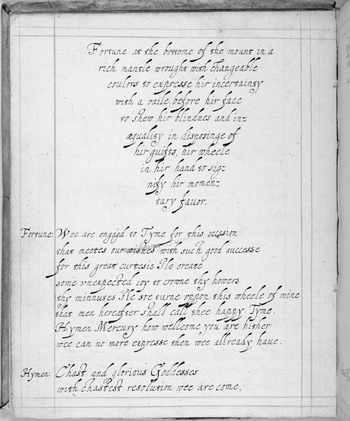 Fortune at the bottome of the mount in a
rich mantle wrought with changeable
coulors to expresse hir incertainty
with a vaile before hir face
to shew hir blindnes and inz
æquality in disposinge of
hir guifts, hir wheele
in hir hand to sigz
nify hir momenz
tary favor.
Fortune: Wee are engaged to Tyme for this occasion
that meetes our wishes with such good successe
for this great curtesie Ile create
some unexpected joy to crowne thy howers
thy minnutes Ile soe turne uppon this wheele of mine
that men hereafter shall call thee happy Tyme.
Hymen Mercury how wellcome you are hither
wee can no more expresse then wee allready haue.
Hymen: Chast and glorious Goddesses
with chastest resolution wee are come,